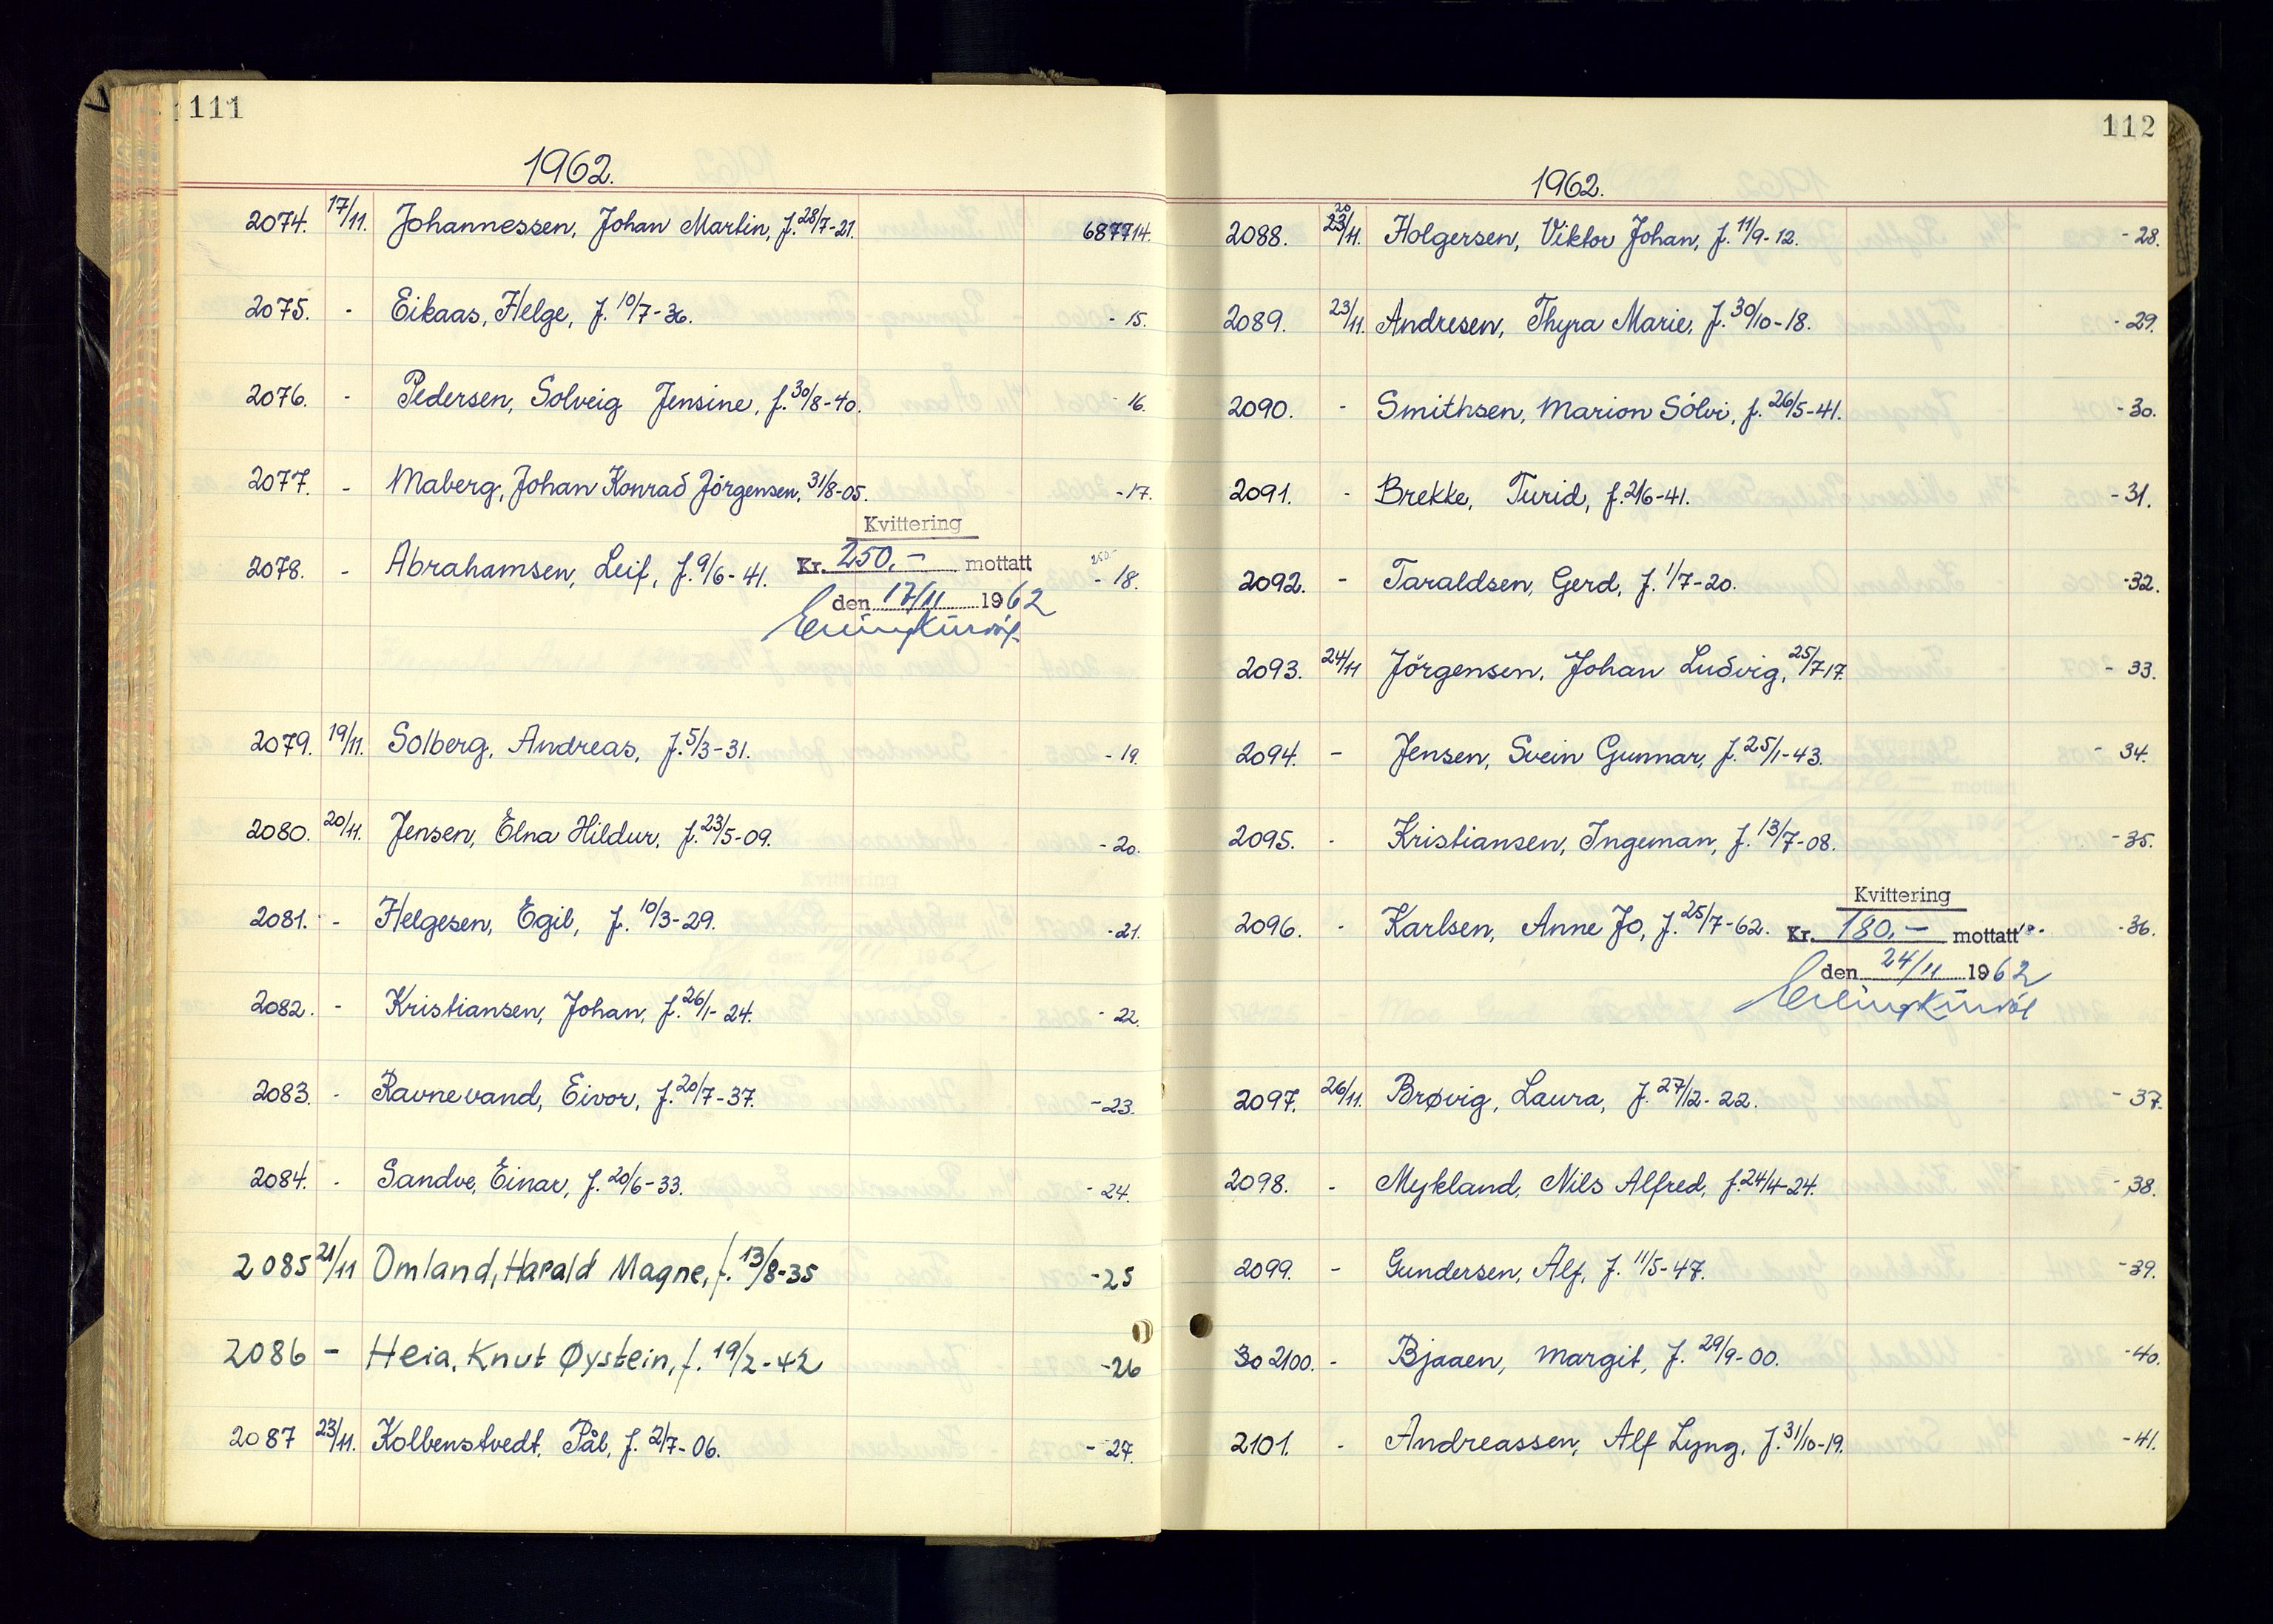 111
1962.
2074. 17/11. Johannessen, Johan Martin, f. 28/7-21. 687714.
2075. - Eikaas, Helge, f. 10/7-36. - 15.
2076. - Pedersen, Solveig Jensine, f. 30/8-40. 16.
2077. - Maberg, Johan Konrad Jörgensen, 31/8-05. - 17.
Kvittering
2078. - Abrahamsen, Leif, f. 9/6-41. Kr. 250,- mottatt 250- - 18.
den 17/11 1962
2079. 19/11. Solberg, Andreas, f. 5/3-31. - 19.
2080. 20/11. Jensen, Elna Hildur, f. 23/5-09. - 20.
2081. - Helgesen, Egil, f. 10/3-29. - 21.
2082. - Kristiansen, Johan, f. 26/1-24. - 22.
2083. - Ravnevand, Eivor, f. 20/7-37. - 23.
2084. - Sandve, Einar, f. 20/6-33. - 24.
2085 21/11 Omland, Harald Magne, f. 13/8-35 -25
2086 - Heia, Knut Øystein, f. 19/2-42 -26
2087 23/11. Kolbenstvedt, Pål, f. 2/7-06. - 27.
112
1962.
20
2088. 23/11. Holgersen, Viktor Johan, f. 11/9-12. - 28.
2089. 23/11. Andresen, Thyra Marie, f. 30/10-18. - 29.
2090. - Smithsen, Marion Sölvi, f. 26/5-41. - 30.
2091. - Brekke, Turid, f. 2/6-41. - 31.
2092. - Taraldsen, Gerd, f. 1/7-20. -32.
2093. 24/11 Jörgensen, Johan Ludvig, 25/7 17. - 33.
2094. - Jensen, Svein Gunnar, f. 25/1-43. - 34.
2095. - Kristiansen, Ingeman, f. 13/7-08. - 35.
Kvittering
2096. - Karlsen, Anne Jo, f. 25/7-62. Kr. 180,- mottatt -36.
den 24/11 1962
2097. 26/11. Brøvig, Laura, f. 27/12-22. - 37.
2098. - Mykland, Nils Alfred, f. 24/4-24. - 38.
2099. - Gundersen, Alf, f. 11/5-47. - 39.
30 2100. - Bjaaen, Margit, f. 29/9-00. - 40.
2101. - Andreassen, Alf Lyng, f. 31/10-19. - 41.